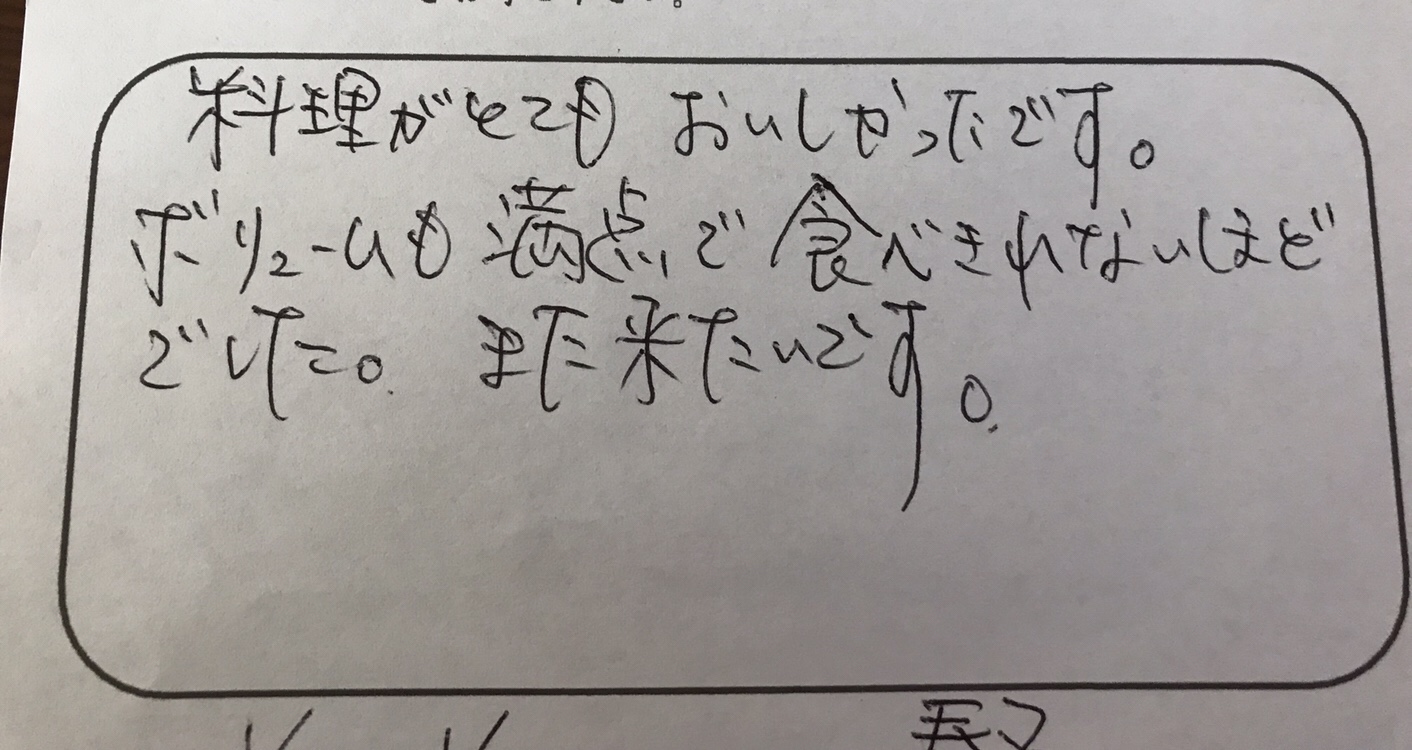 料理がとてもおいしかったです。
ボリュームも満点で食べきれないほど
でした。また来たいです。